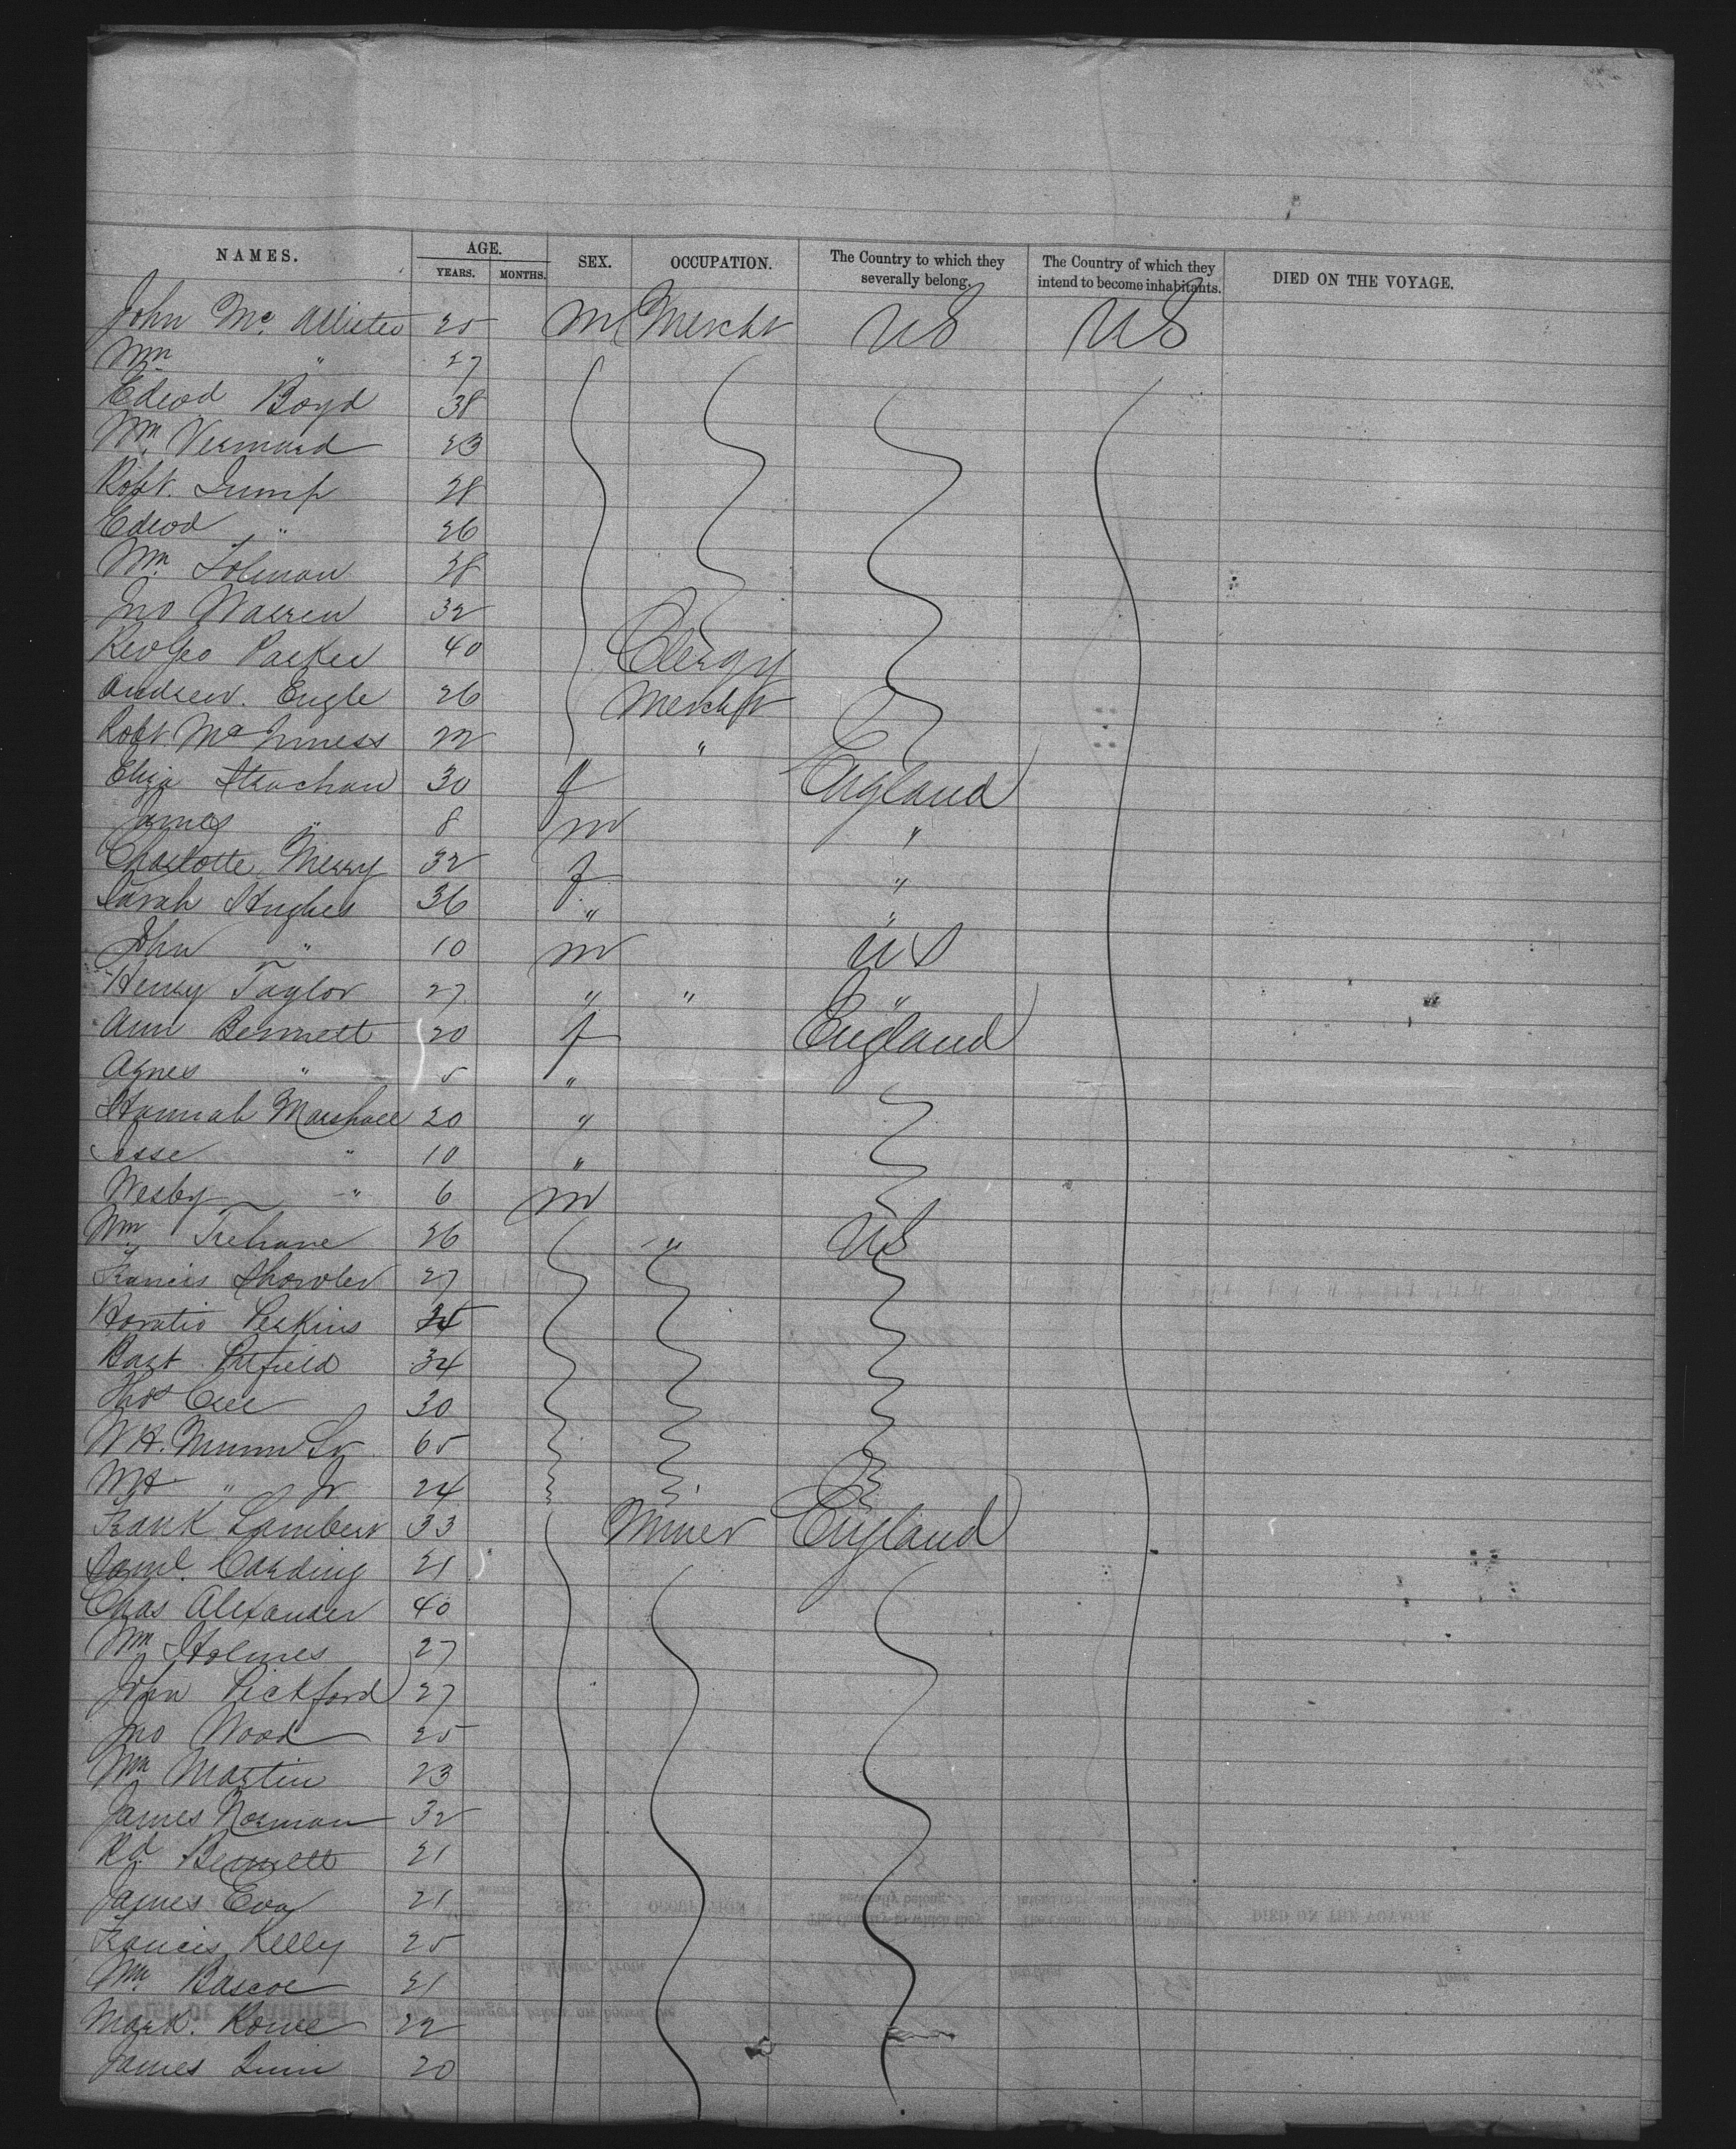 NAMES. AGE. YEARS. MONTHS. SEX. OCCUPATION. The Country to which they severally belong. The Country of which they intend to become inhabitants. DIED ON THE VOYAGE.
John Mc Allister 25 m Mercht US US
Wm " 27
Edwd Boyd 38
Wm 23
Robt. Jump 28
Edwd " 26
Wm Tolman 28
Jno Warren 32
Rev Geo Parker 40 Clergy
Andrew. Engle 26 Mercht
Robt. 22 "
Eliza Strachan 30 f England
James " 8 m "
Charlotte Merry 32 f "
Sarah Hughes 36 " "
John " 10 m US
Henry Taylor 27 " " "
Ann Bennett 20 f England
Agnes " 5 "
Hannah Marshall 20 "
Jesse " 10 "
Wesby " 6 m
Wm Trehane 26 " US
Francis Showler 27
Horatio Perkins
Bart Pitfield 34
Thos 30
W H. Munn Sr 65
W H " Jr 24
Frank Lambert 33 Miner England
Saml. Carding 21
Chas Alexander 40
Wm Holmes 27
John Pickford 27
Jno Wood 25
Wm Martin 23
James Norman 32
Rd Bennett 21
James Eva 21
Francis Kelly 25
Wm Bascoe 21
Mark. Rowe 22
James 20